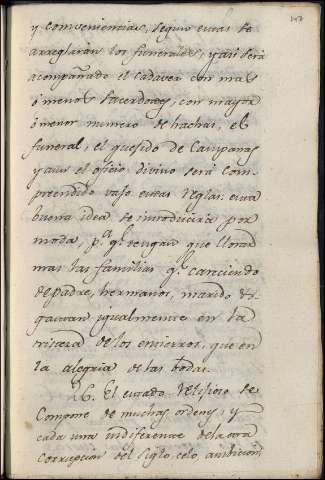 y conveniencias, segun estas se
arreglarán los funerales, y asi será
acompañado el cadaver con mas
ó menos Sacerdotes, con mayor
ó menor numero de hachas, el
funeral, el quesido de Campanas
y aun el oficio divino será Com-
preendido vajo estas reglas: esta
buena idea se introduciria por
moda, pª qe tengan que llorar
mas las familias qe careciendo
de Padre, hermanos, marido &ª
gastan igualmente en la
tristeza de los entierros, que en
la alegria de las bodas.
26. El estado Relijioso se
Compone de muchas ordenes, y
cada una indiferente de la otra
Corrupcion del siglo, celo, ambicion